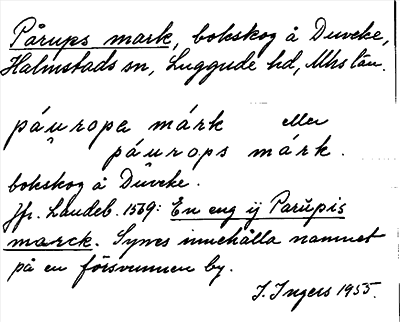 Pårups mark, bokskog å Duveke,
Halmstads sn, Luggude hd, Mhs län.
páu̯ropa márk eller
páu̯rops márk.
bokskog å Duveke.
Jfr. Landeb. 1569: En eng ij Parŭpis
marck. Synes innehålla namnet
på en försvunnen by.
I. Ingers 1955.